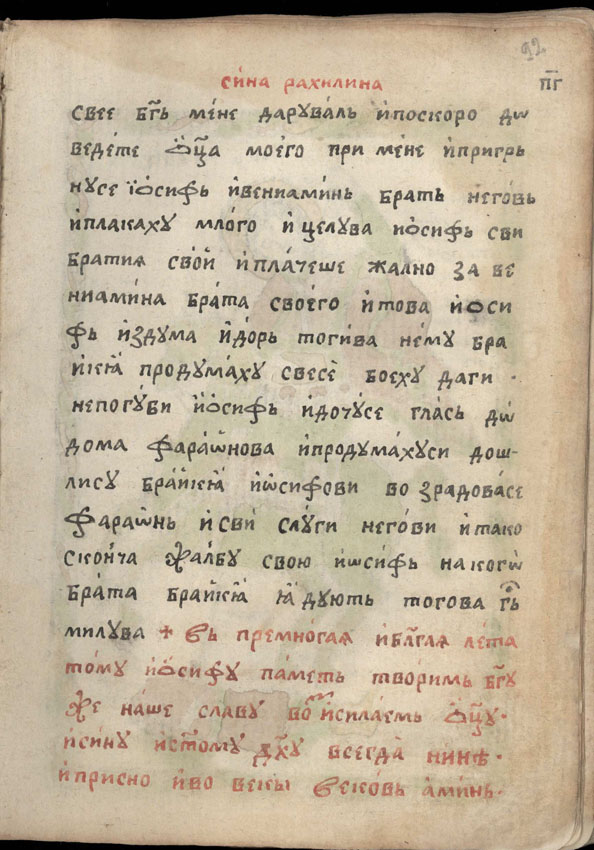 92
си́на рахилина
п҃г
свее бг҃ь мене дарува́ль и҆поскоро дѡ
ведѣте ѻ҆ц҃а моего при мене и҆пригрь
нусе їѻсифь и҆вениами́нь брать неговь
и҆плакаху много и҆ целува иѻсифь сви
братиꙗ свои҆ и҆пла́чеше жално за ве
ниами́на бра́та своего и҆ това и҆ѻси
фь и҆здума и҆до́рь тоги́ва не́му бра
и҆кꙗ продума́ху свесѐ боеху даги ·
непогу́би и҆ѻсифь и҆дочу́се глась дѡ
дома фараѡ҆нова и҆продума́хуси дош-
лису бра́и҆кꙗ и҆ѡсифови во зрадова́се
фараѡнь и҆ сви́ слу́ги него́ви и҆ тако
сконча ѫа́лбу свою и҆ѡсифь на когѡ̀
бра́та браи҆кꙗ ꙗ҆ду́ють тогова гд҃ь
милува + вь премногая и҆бл҃гля лѣта
тому и҆ѻ́сифу па́меть твори́мь бг҃у
же на́ше сла́ву во́ и҆силаемь ѻ҆ц҃у ·
и҆си́ну и҆ст҃ому дх҃у всегда̀ нинѣ ·
и҆ присно и҆во векы вековь ами́нь ·